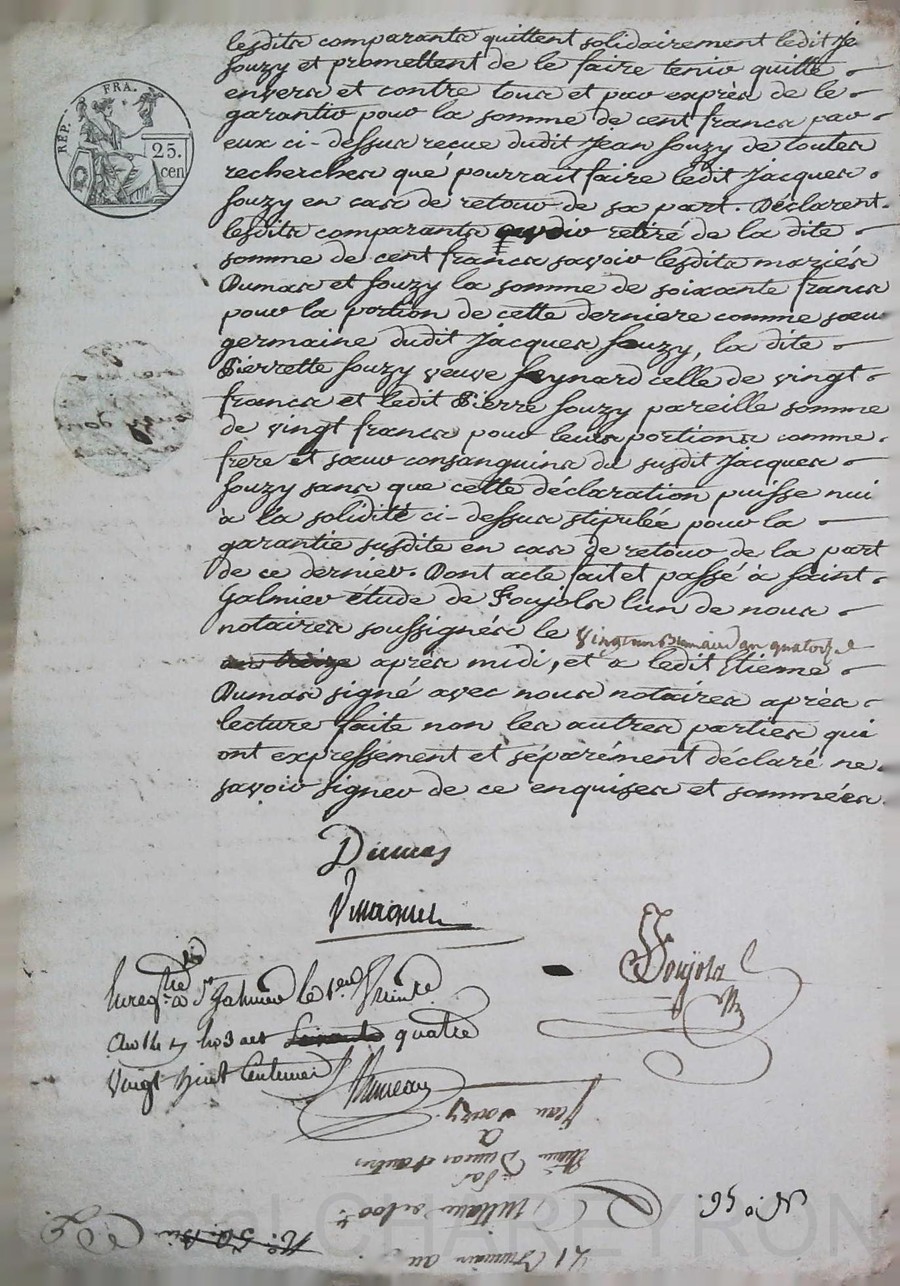 RÉP. FRA.
25.
cen
lesdits comparants quittent solidairement ledit Je
Souzy et promettent de le faire tenir quitte
envers et contre tous et par exprès de le
garantir pour la somme de cent francs par
eux ci-dessus reçue dudit Jean Souzy de toutes
recherches que pourrait faire ledit Jacques
Souzy en cas de retour de sa part. Déclarent
lesdits comparants retiré de la dite
somme de cent francs savoir lesdits mariés
Dumas et Souzy la somme de soixante francs
pour la portion de cette derniere comme sœur
germaine dudit Jacques Souzy, la dite
Pierrette Souzy veuve Peynard celle de vingt
francs et ledit Pierre Souzy pareille somme
de vingt francs pour leurs portions comme
frere et sœur consanguins du susdit Jacques
Souzy sans que cette déclaration puisse nui
à la solidité ci-dessus stipulée pour la
garantie susdite en cas de retour de la part
de ce dernier. Dont acte fait et passé à Saint
Galmier étude de Foujols l'un de nous
notaires soussignés le vingt un Brumaire an quatorze
an treize après midi, et a ledit Etienne
Dumas signé avec nous notaires après
lecture faite non les autres parties qui
ont expressément et séparément déclaré ne
savoir signer de ce enquises et sommées.
Dumas
Foujols
à St Galmier le trente
an 14 quatre
vingt huit Centimes
Jean Souzy
a
Dumas et autres
21 Brumaire an
CHAREYRON